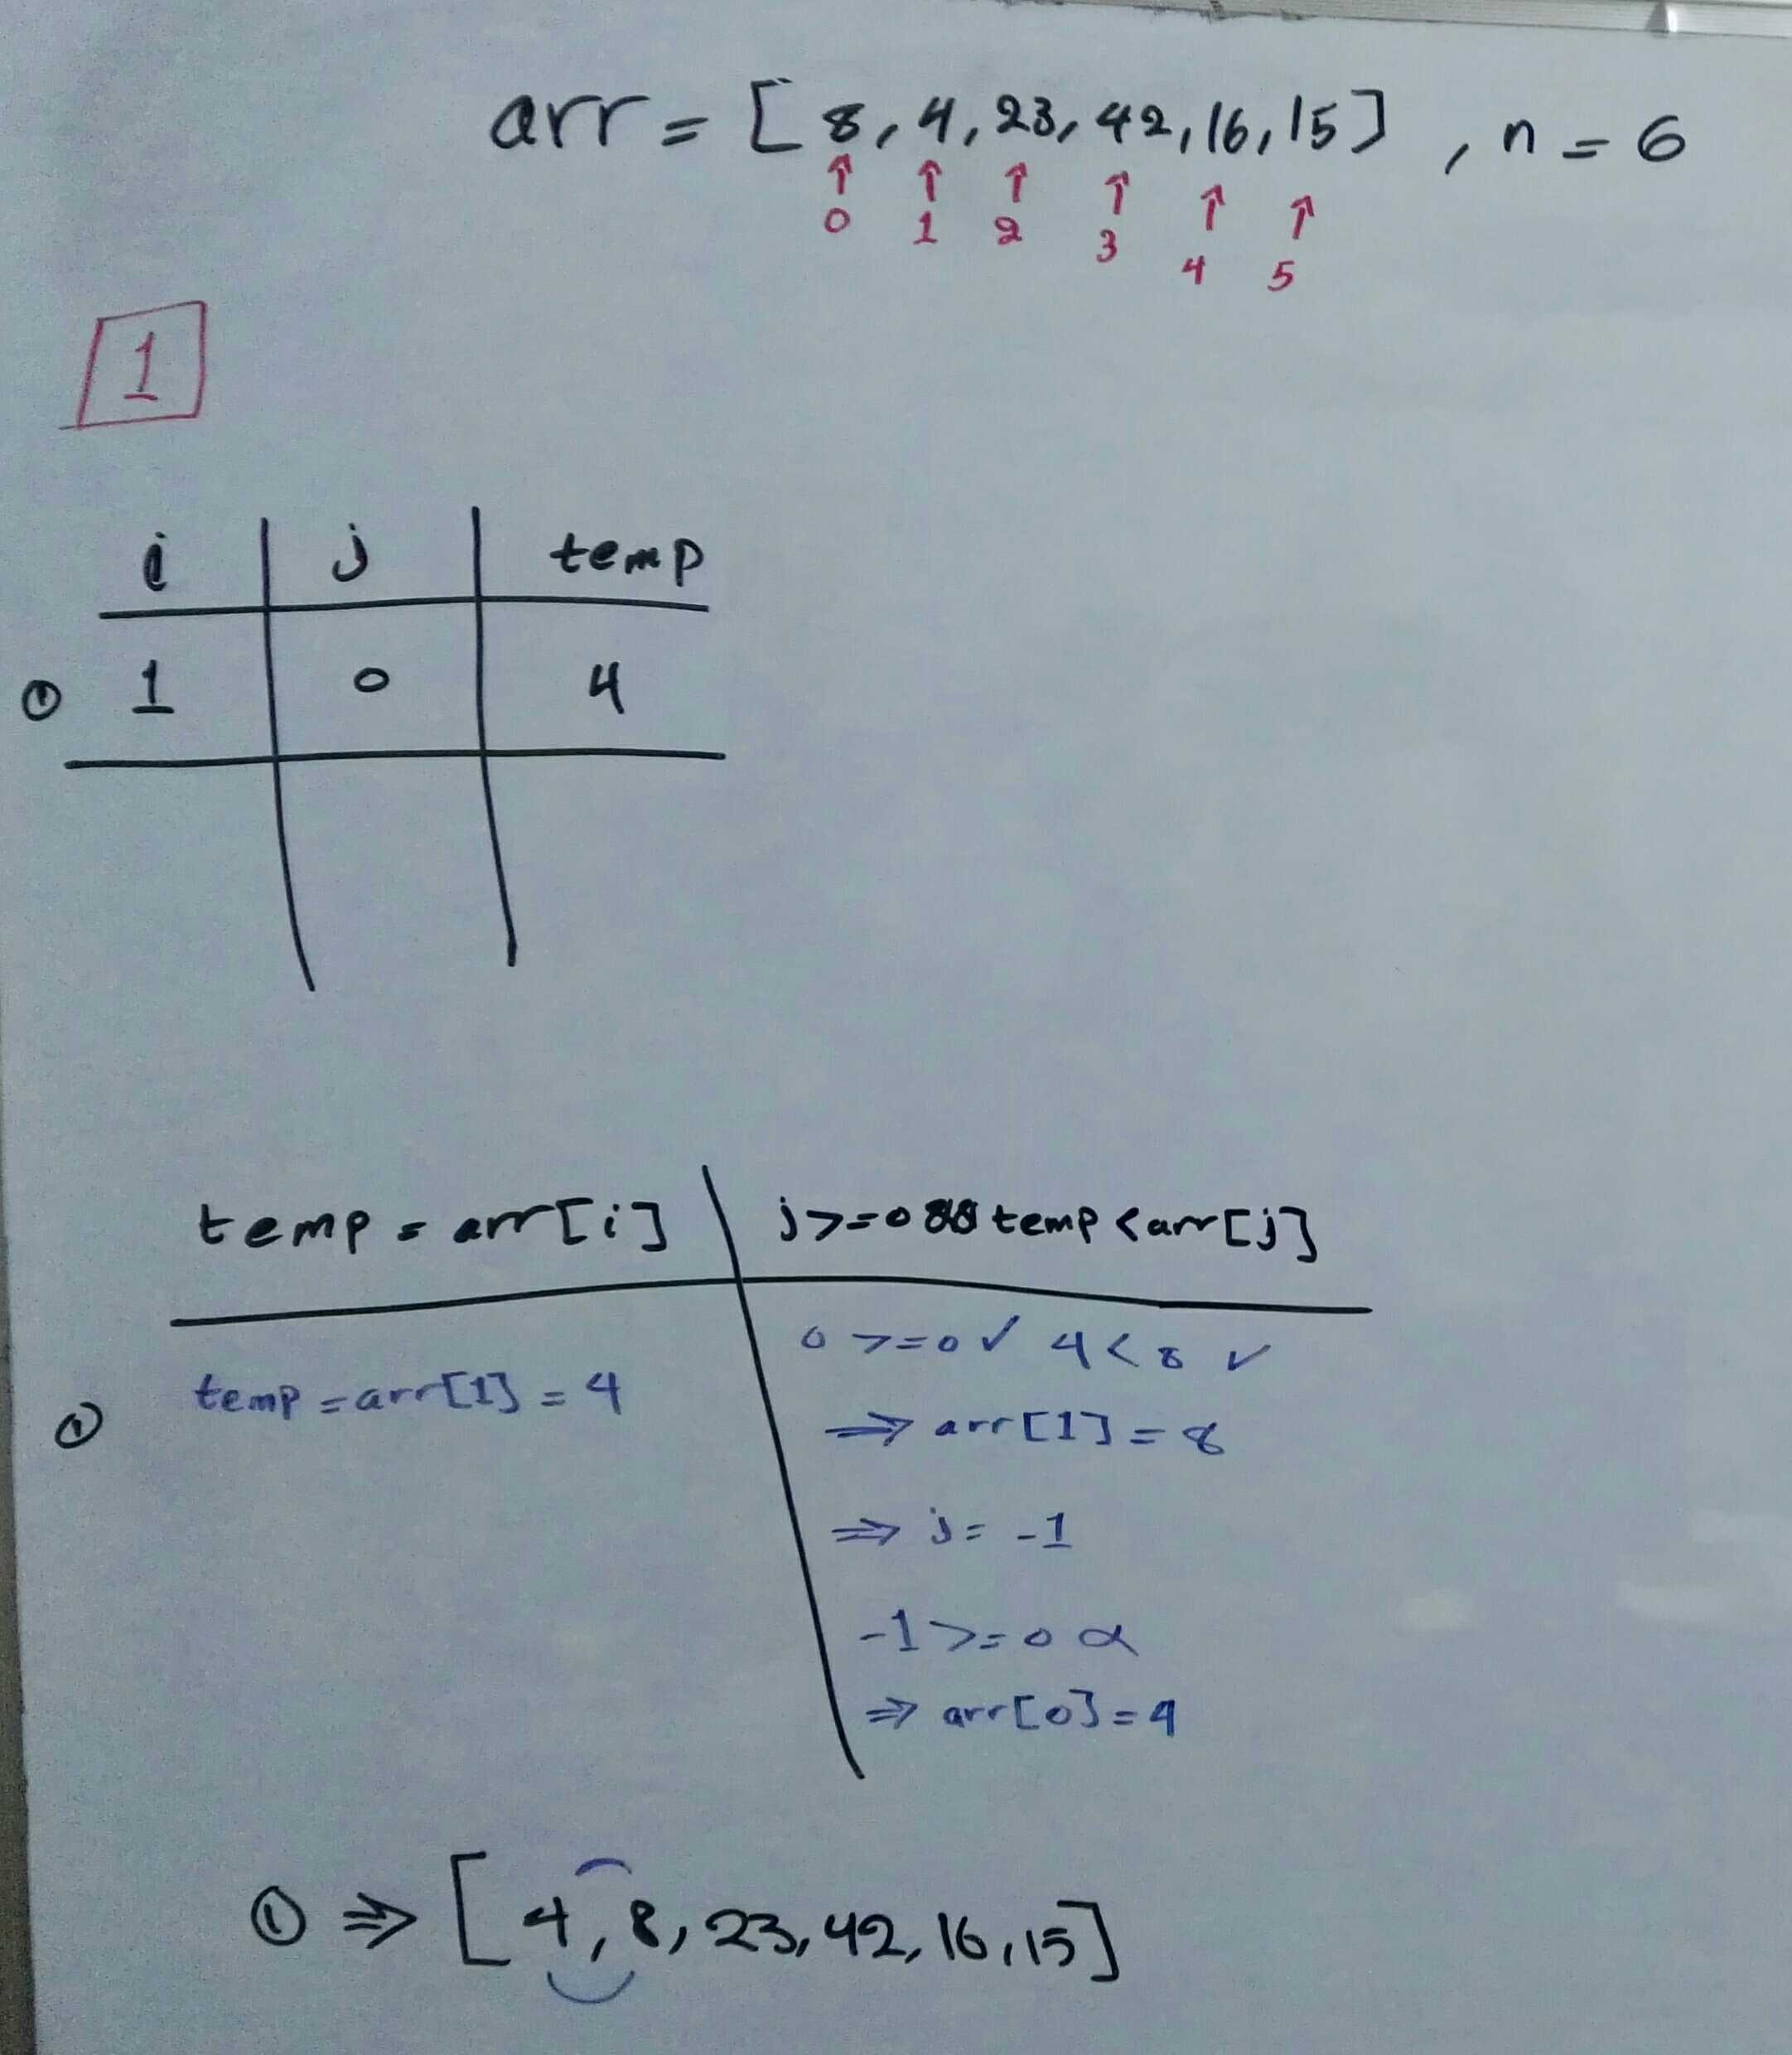 arr = [ 8, 4, 23, 42, 16, 15 ] , n = 6
↑ ↑ ↑ ↑ ↑ ↑
0 1 2 3 4 5
1
i j temp
① 1 0 4
temp = arr[i] j>=0 && temp < arr[j]
0 >= 0 ✓ 4 < 8 ✓
① temp = arr[1] = 4
⇒ arr[1] = 8
⇒ j = -1
-1 >= 0 x
⇒ arr[0] = 4
① ⇒ [ 4, 8, 23, 42, 16, 15 ]